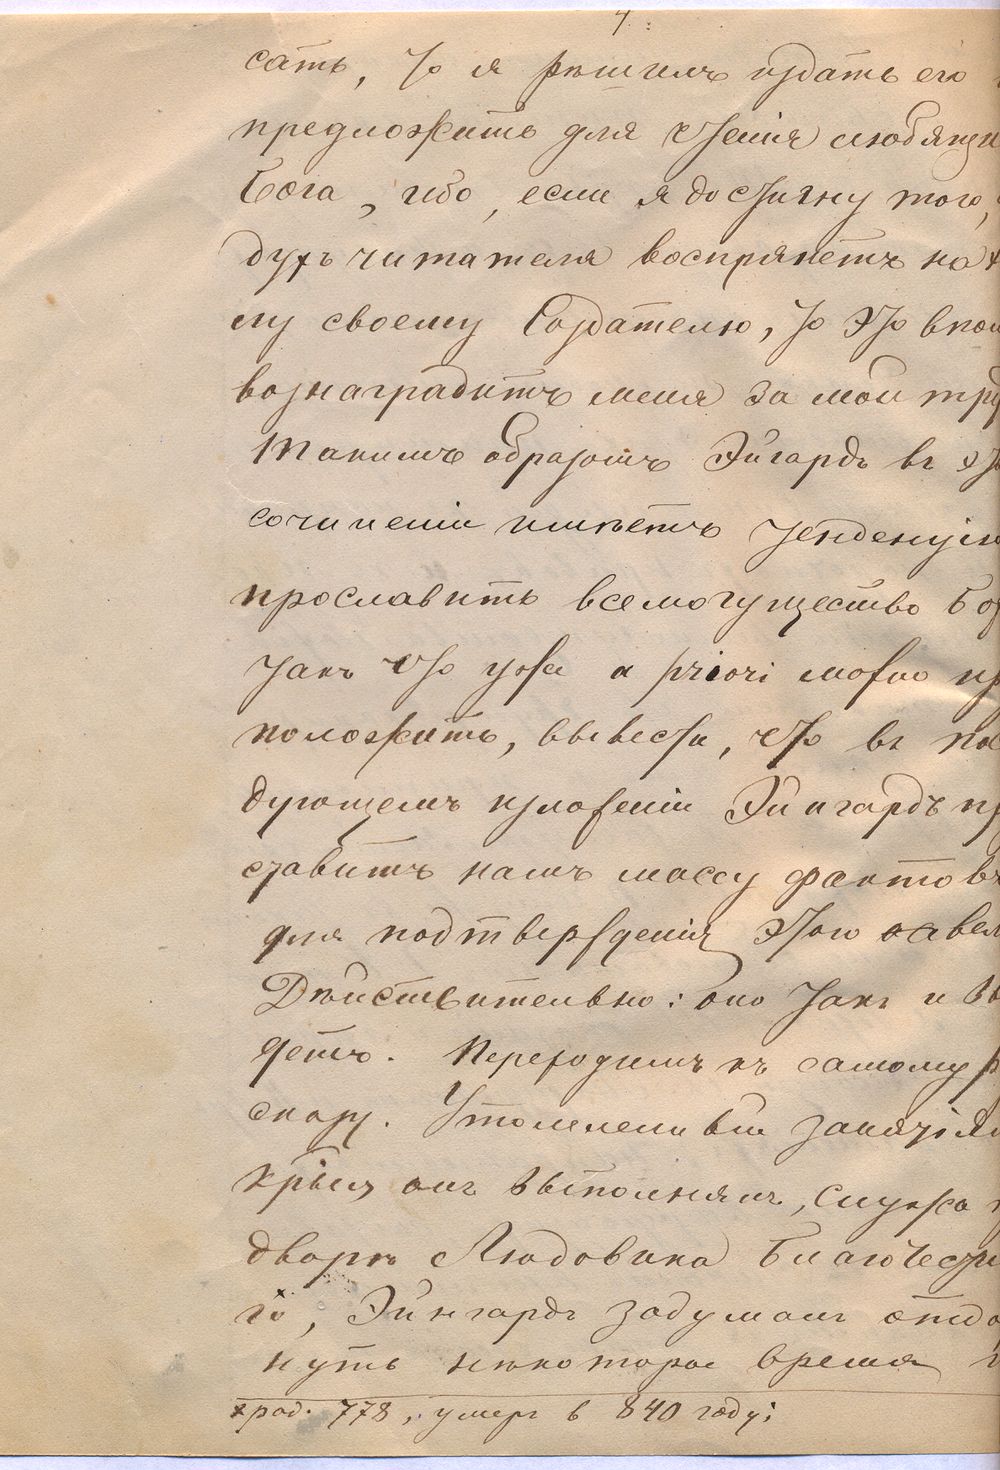 4.
сать, то я рѣшилъ издать его
предложить для чтенія любящи
Бога, ибо, если я достигну того,
духъ читателя воспрянетъ на
лу своему Создателю, то это впол
вознаградитъ меня за мои тру
Такимъ образомъ Эйгардъ въ это
сочиненіи имѣетъ тенденцію
прославить всемогущество Бо
такъ что уже a priori можно пр
положить, вывести, что въ по
дующемъ изложеніи Эйнгардъ пр
ставитъ намъ массу фактовъ
для подтвержденія этого
Дѣйствительно: оно такъ и вы
детъ. Переходимъ къ самому р
сказу. Утомленный занятіям
кои онъ выполнялъ, служа п
дворѣ Людовика Благочести
го, Эйнгардъ задумалъ отдо
нуть нѣкоторое время
род. 778, умеръ в 840 году;